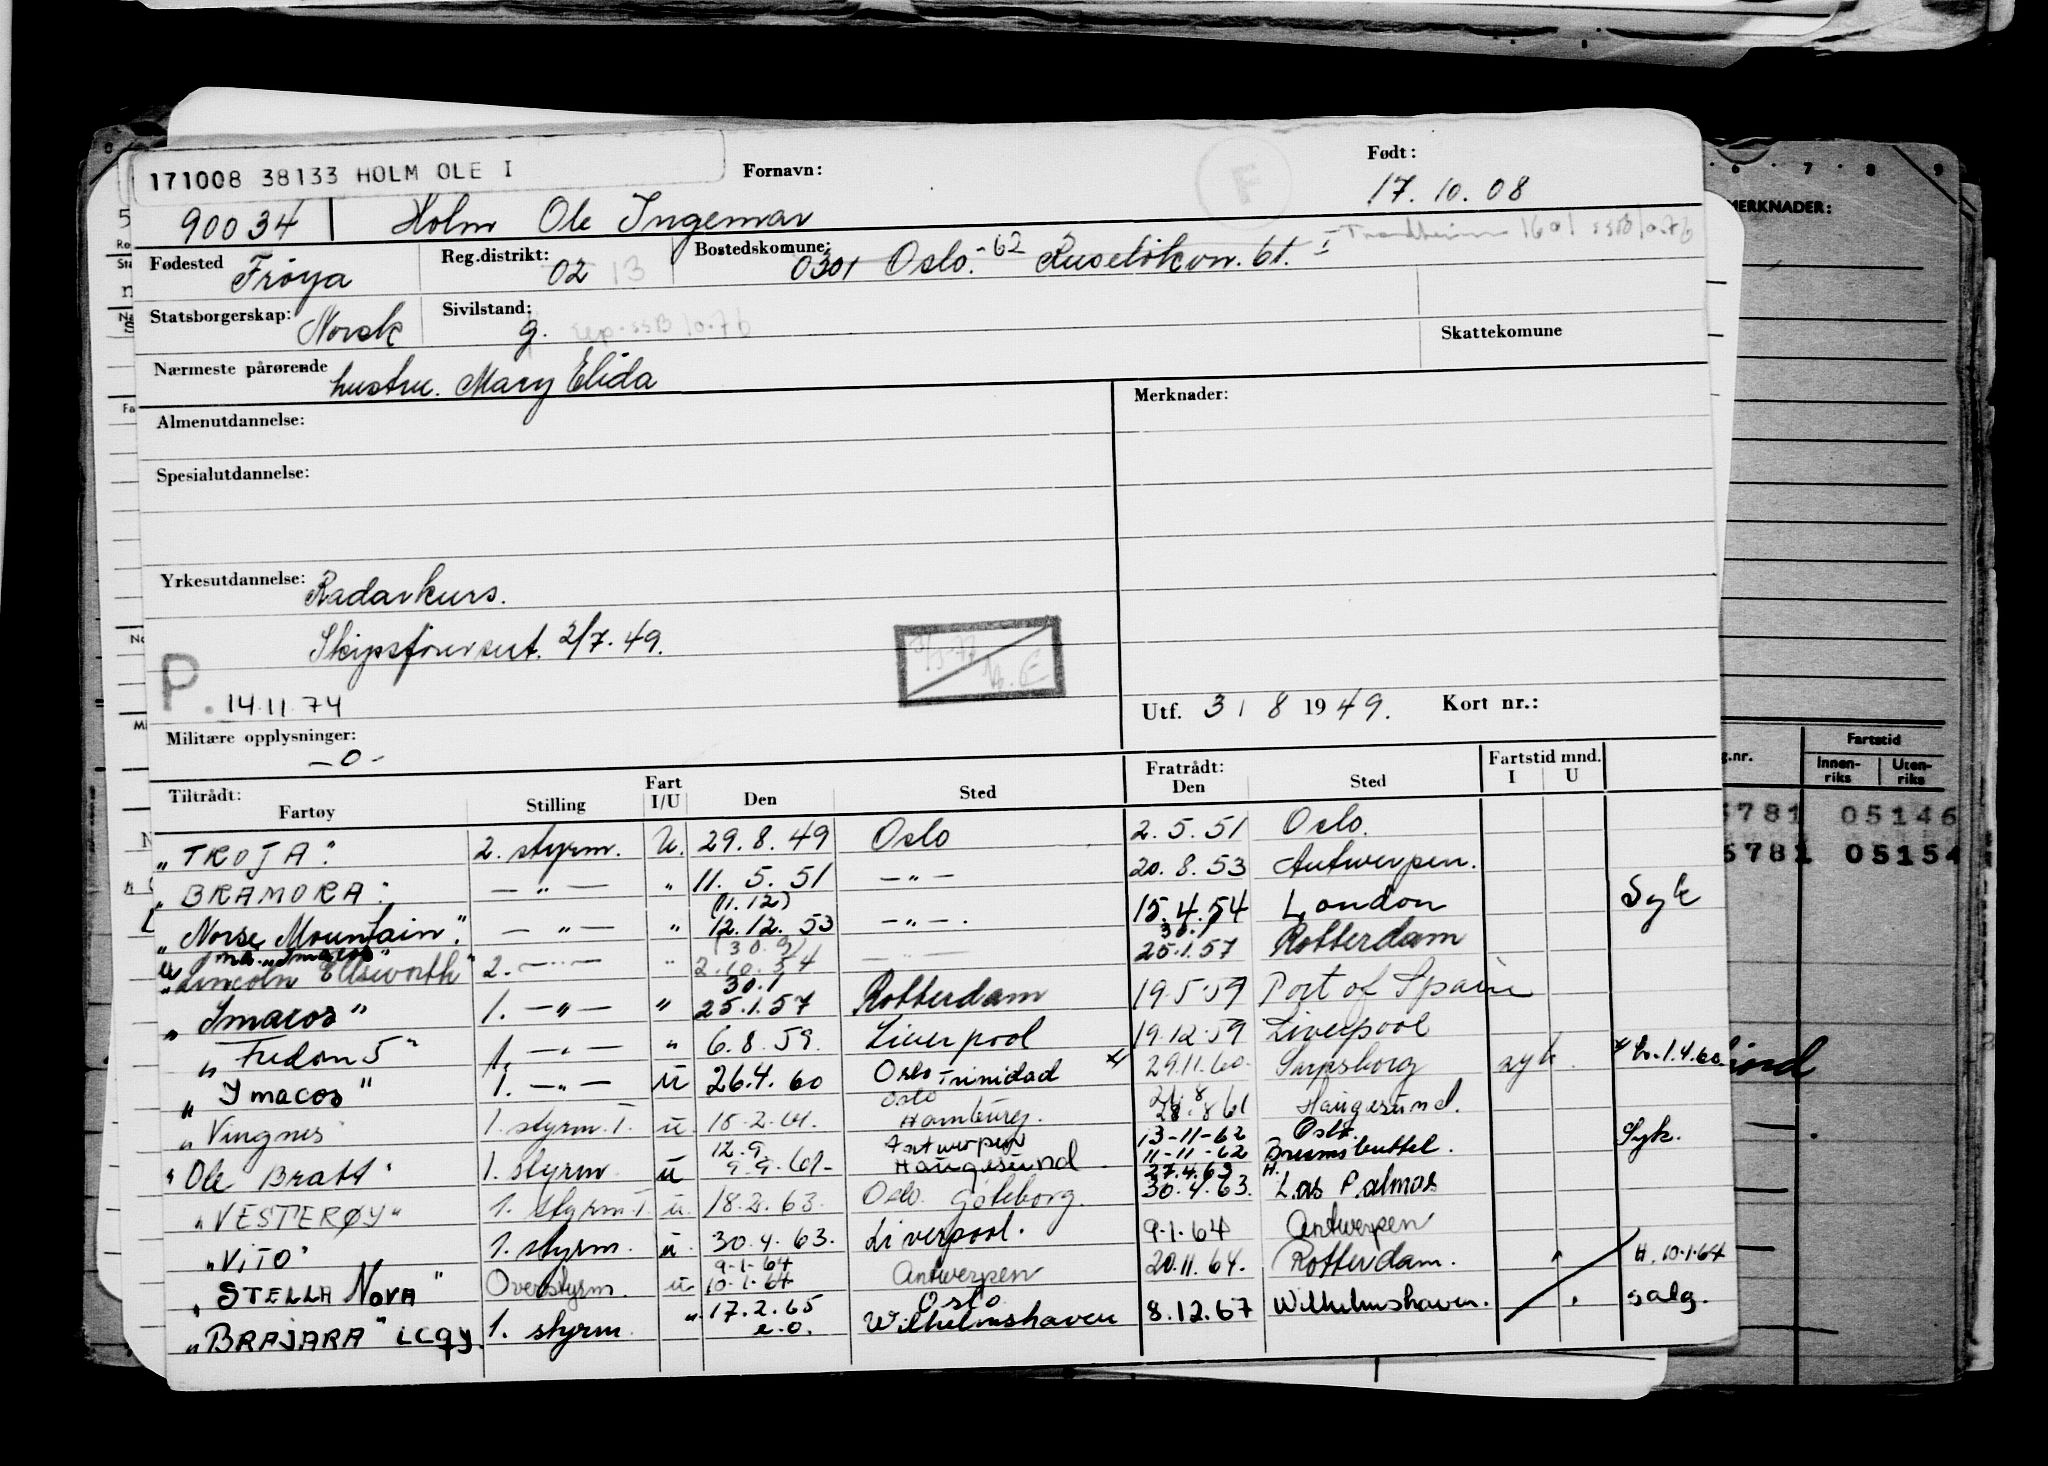 171008 38133 HOLM OLE I
Fornavn:
Født:
17.10.08
90034 Holm Ole Ingemar
F
Fødested Frøya
Reg.distrikt: 02 13
Bostedskomune: 0301 Oslo.-62 Ruseløkvn. 61. I Trondheim 1601 SSB 10.76
Statsborgerskap: Norsk
Sivilstand: g. SSB 10.76
Skattekomune
Nærmeste pårørende hustru. Mary Elida
Almenutdannelse:
Merknader:
Spesialutdannelse:
Yrkesutdannelse: Radarkurs.
Skipsførersert. 2/7.49.
P. 14.11.74
Utf. 31 8 1949. Kort nr.:
Militære opplysninger: -0-
Tiltrådt:
Fartøy Stilling Fart I/U Den Sted
Fratrådt: Den Sted
Fartstid mnd. I U
"TROJA". 2. styrm. U. 29.8.49 Oslo 2.5.51 Oslo.
"BRAMORA". — " — " 11.5.51 — " — 20.8.53 Antwerpen.
"Norse Mountain". — " — " (1.12) 12.12.53 — " — . 15.4.54 London Syk
"Lincoln Ellsworth" 2. — " — " (30.9) 2.10.54 — " — 30.1 25.1.57 Rotterdam
"Imacos" 1. — " — " 30.1 25.1.57 Rotterdam 19.5.59 Port of Spain
"Fredon5" 1. — " — " 6.8.59. Liverpool 19.12.59 Liverpool
"Imacos" 1. — " — U 26.4.60 Oslo Trinidad 29.11.60. Sarpsborg syk.
"Vingnes 1. styrm. I. U. 15.2.61. Oslo Hamburg. 28.8.61 Haugesund.
"Ole Bratt" 1. styrm U 12.9 9.9.61- Antwerpen Haugesund 13-11-62 Oslo. 11-11-62 Brunsbuttel. Syk.
"VESTERØY" 1. styrm. I. U. 18.2.63. Oslo. Gøteborg. 27.4.63 H. 30.4.63. Las Palmas
"VITO" 1. styrm. U. 30.4.63. Liverpool. 9.1.64 Antwerpen
"STELLA NOVA" Overstyrm. U 9-1-64 10-1-64 Antwerpen 20.11.64. Rotterdam. " H. 10-1-64
"BRAJARA" LCQY 1. styrm. " 17.2.65 e.o. Oslo Wilhelmshaven 8.12.67 Wilhelmshaven. salg.
6 7 8 9
MERKNADER:
g.nr. Fartstid
Innenriks Utenriks
5781 05146
5781 05154